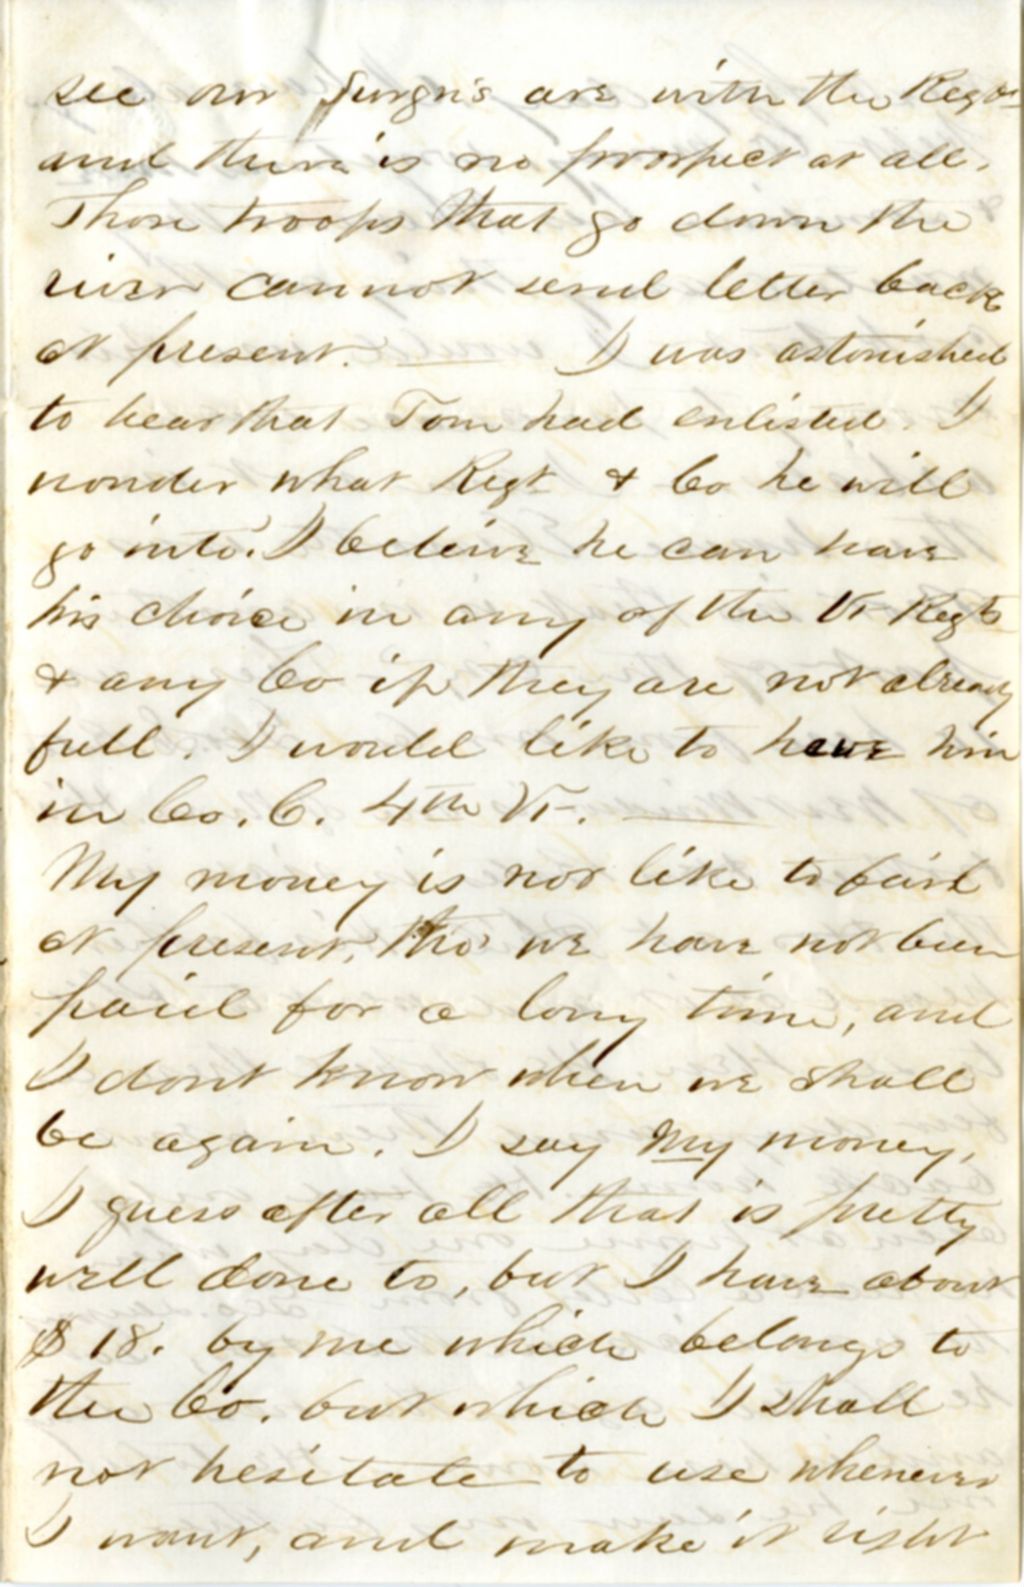 see our Surgn's are with the Regts
and there is no prospect at all.
Those troops that go down the
river cannot send letter back
at present. — I was astonished
to hear that Tom had enlisted. I
wonder what Regt & Co he will
go into. I beleive he can have
his choice in any of the Vt Regts
& any Co if they are not already
full. I would like to have him
in Co. C. 4th Vt. —
My money is not like to fail
at present, tho' we have not been
paid for a long time, and
I dont know when we shall
be again. I say My money,
I guess after all that is pretty
well done to, but I have about
$18. by me which belongs to
the Co. but which I shall
not hesitate to use whenever
I want, and make it right